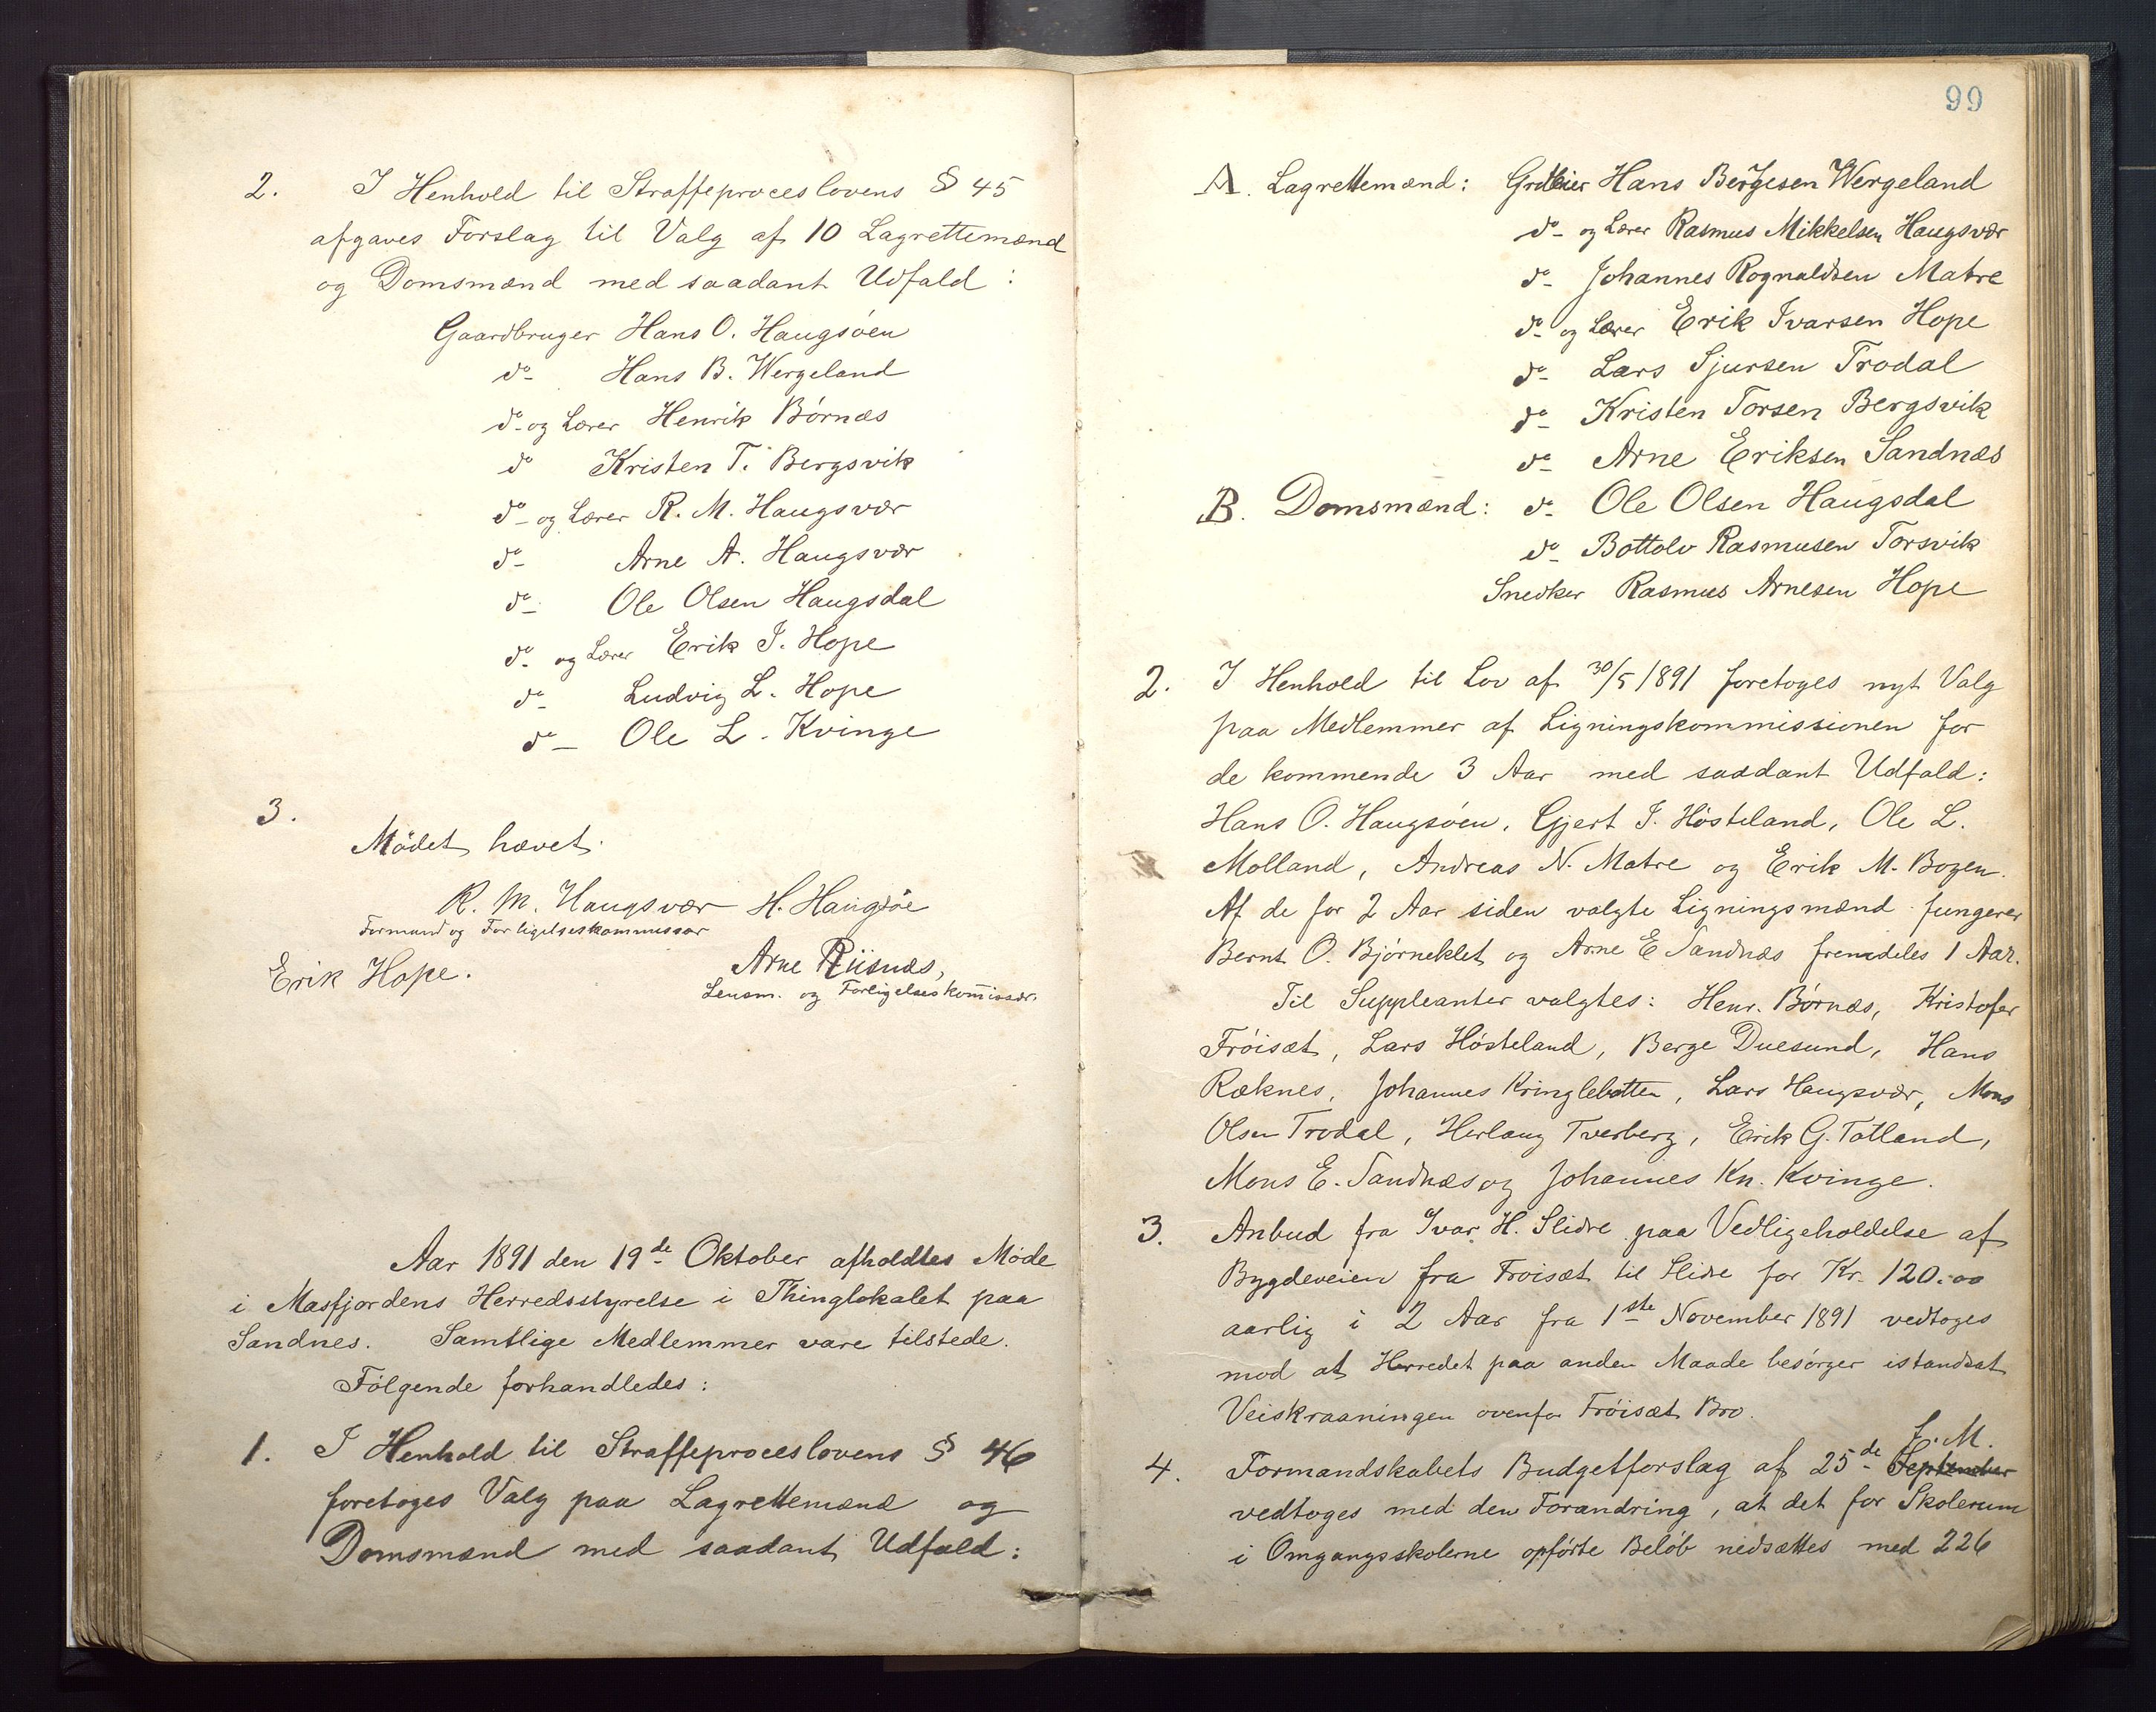 2. I Henhold til Straffeproceslovens § 45
afgaves Forslag til Valg af 10 Lagrettemænd
og Domsmænd med saadant Udfald:
Gaardbruger Hans O. Haugsøen
do Hans B. Wergeland
do og Lærer Henrik Børnæs
do Kristen T. Bergsvik
do og Lærer R. M. Haugsvær
do Arne A. Haugsvær
do Ole Olsen Haugsdal
do og Lærer Erik I. Hope
do Ludvig L. Hope
do Ole L. Kvinge
3.
Mødet hævet.
R. M. Haugsvær H. Haugsøe
Formand og Forligelseskommissær
Erik Hope. Arne Riisnæs,
Lensm. og Forligelseskommissær.
Aar 1891 den 19de Oktober afholdtes Møde
i Masfjordens Herredsstyrelse i Thinglokalet paa
Sandnes. Samtlige Medlemmer vare tilstede.
Følgende forhandledes:
1. I Henhold til Straffeproceslovens § 46
foretoges Valg paa Lagrettemænd og
Domsmænd med saadant Udfald:
99
A. Lagrettemænd: Grdbr Hans Bergesen Wergeland
do og Lærer Rasmus Mikkelsen Haugsvær
do Johannes Rognaldsen Matre
do og Lærer Erik Ivarsen Hope
do Lars Sjursen Trodal
do Kristen Torsen Bergsvik
do Arne Eriksen Sandnæs
B. Domsmænd: do Ole Olsen Haugsdal
do Bottolv Rasmusen Torsvik
Snedker Rasmus Arnesen Hope
2. I Henhold til Lov af 30/5 1891 foretoges nyt Valg
paa Medlemmer af Ligningskommissionen for
de kommende 3 Aar med saadant Udfald:
Hans O. Haugsøen, Gjert I. Høsteland, Ole L.
Molland, Andreas N. Matre og Erik M. Bogen.
Af de for 2 Aar siden valgte Ligningsmænd fungerer
Bernt O. Bjørneklet og Arne E Sandnæs fremdeles 1 Aar.
Til Suppleanter valgtes: Henr. Børnæs, Kristofer
Frøisæt, Lars Høsteland, Berge Duesund, Hans
Ræknes, Johannes Kringlebotten, Lars Haugsvær, Mons
Olsen Trodal, Herlaug Tverberg, Erik G. Totland,
Mons E. Sandnæs og Johannes Kn. Kvinge.
3. Anbud fra Ivar H. Slidre paa Vedligeholdelse af
Bygdeveien fra Frøisæt til Slidre for Kr. 120.00
aarlig i 2 Aar fra 1ste November 1891 vedtoges
mod at Herredet paa anden Maade besørger istandsat
Veiskraaningen ovenfor Frøisæt Bro.
f. M.
4. Formandskabets Budgetforslag af 25de September
vedtoges med den Forandring, at det for Skolerum
i Omgangsskolerne opførte Beløb nedsættes med 226